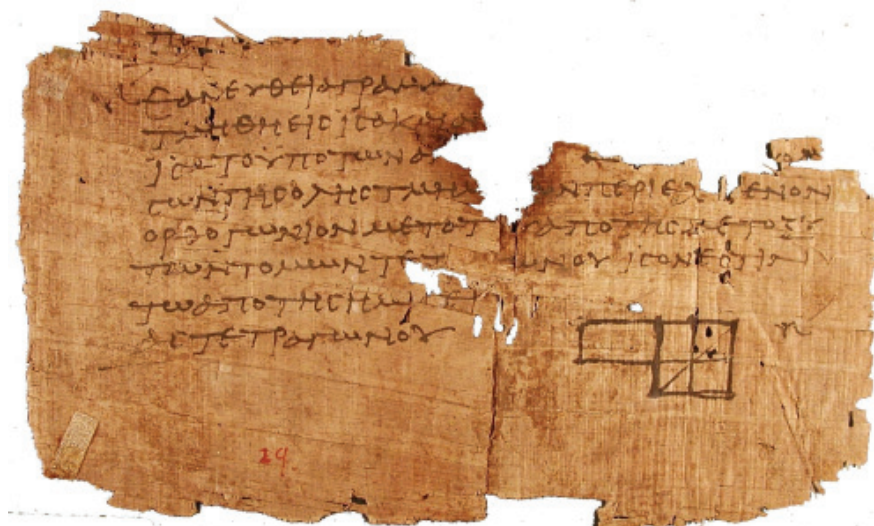 ΕΑΝ ΕΥΘΕΙΑ ΓΡΑΜΜ
ΤΜΗΘΗ ΕΙϹ ΙϹΑ ΚΑΙ ΑΝ
ΙϹΑ ΤΟ ΥΠΟ ΤΩΝ ΑΝ
ϹΩΝ ΤΗϹ ΟΛΗϹ ΤΜΗΜ ΩΝ ΠΕΡΙΕΧΟΜΕΝΟΝ
ΟΡΘΟΓΩΝΙΟΝ ΜΕΤΑ ΤΟΥ ΑΠΟ ΤΗϹ ΜΕΤΟΞΥ
ΤΩΝ ΤΟΜΩΝ ΤΕΤ ΩΝΟΥ ΙϹΟΝ ΕϹΤΙΝ
ΤΩ ΑΠΟ ΤΗϹ ΗΜΙϹΕΙ
ΑϹ ΤΕΤΡΑΓΩΝΟΥ
29